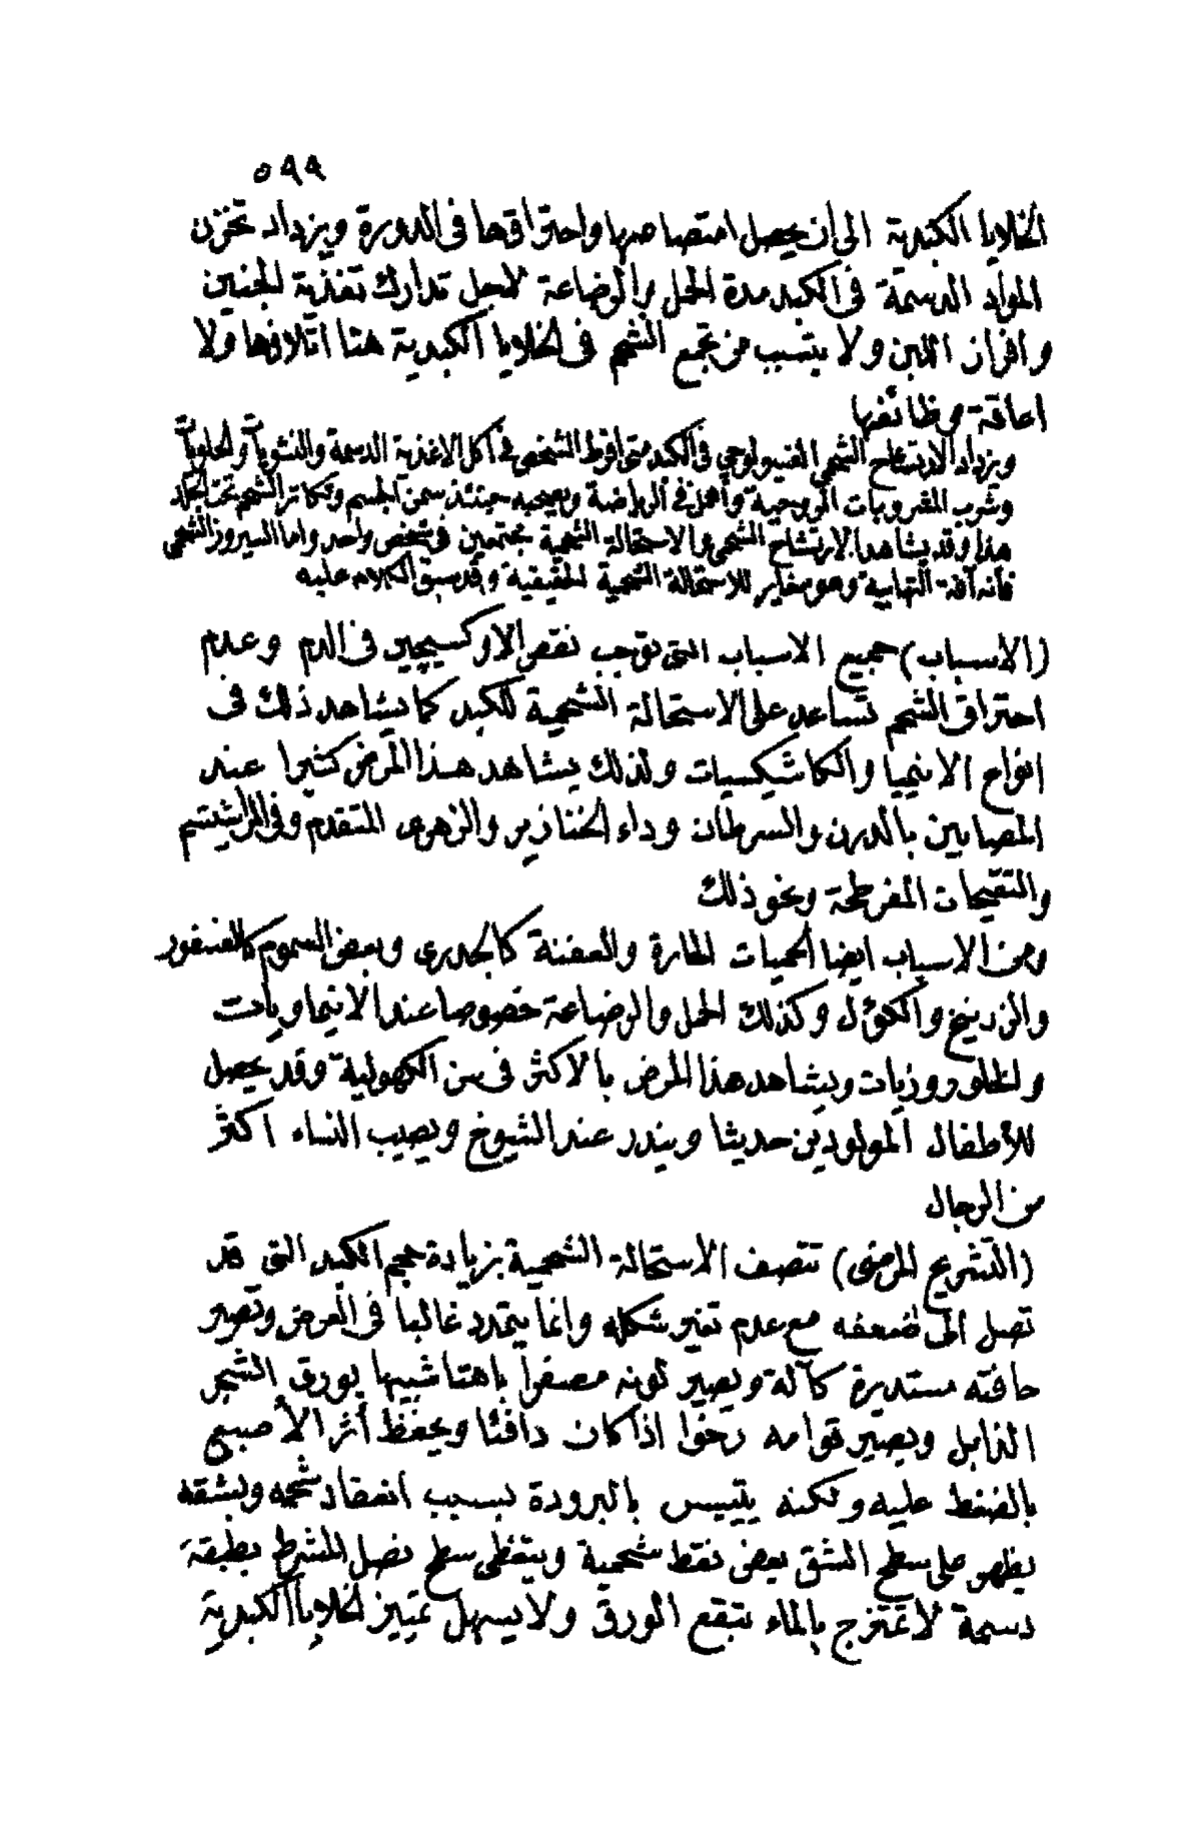 ٥٩٩
الخلايا الكبدية الى ان يحصل امتصاصها واحتراقها فى الدورة ويزداد تخزن
المواد الدسمة فى الكبد مدة الحمل والرضاعة لاجل تدارك تغذية الجنين
وافراز اللبن ولا يتسبب من تجمع الشحم فى الخلايا الكبدية هنا اتلافها ولا
اعاقة وظائفها
ويزداد الارتشاح الشحمى الفسيولوجي فى الكبد متى افرط الشخص فى اكل الاغذية الدسمة والنشويات والحلويات
وشرب المشروبات الروحية وأهمل فى الرياضة ويصحبه حينئذ سمن الجسم وتكاثر الشحم تحت الجلد
هذا وقد يشاهد الارتشاح الشحمى والاستحالة الشحمية مجتمعين فى شخص واحد واما السيروز الشحمى
فانه آفة التهابية وهو مغاير للاستحالة الشحمية الحقيقية وقد سبق الكلام عليه
(الاسباب) جميع الاسباب التى توجب نقص الاوكسيچين فى الدم وعدم
احتراق الشحم تساعد على الاستحالة الشحمية للكبد كما يشاهد ذلك فى
انواع الانيميا والكاشيكسيات ولذلك يشاهد هذا المرض كثيرا عند
المصابين بالدرن والسرطان وداء الخنازير والزهرى المتقدم وفى الراشيتسم
والتقيحات المفرطة ونحو ذلك
ومن الاسباب ايضا الحميات الحارة والعفنة كالجدرى وبعض السموم كالفسفور
والزرنيخ والكؤل وكذلك الحمل والرضاعة خصوصا عند الانيماويات
والخلوروزيات ويشاهد هذا المرض بالاكثر فى سن الكهولية وقد يحصل
للأطفال المولودين حديثا ويندر عند الشيوخ ويصيب النساء اكثر
من الرجال
(التشريح المرضى) تتصف الاستحالة الشحمية بزيادة حجم الكبد التى قد
تصل الى ضعفه مع عدم تغير شكله وانما يتمدد غالبا فى العرض وتصير
حافته مستديرة كآلة ويصير لونه مصفرا باهتا شبيها بورق الشجر
الذابل ويصير قوامه رخوا اذا كان دافئا ويحفظ أثر الأصبع
بالضغط عليه ولكنه يتيبس بالبرودة بسبب انعقاد شحمه وبشقه
يظهر على سطح الشق بعض نقط شحمية ويتغطى سطح نصل المشرط بطبقة
دسمة لا تمتزج بالماء تبقع الورق ولا يسهل تمييز الخلايا الكبدية